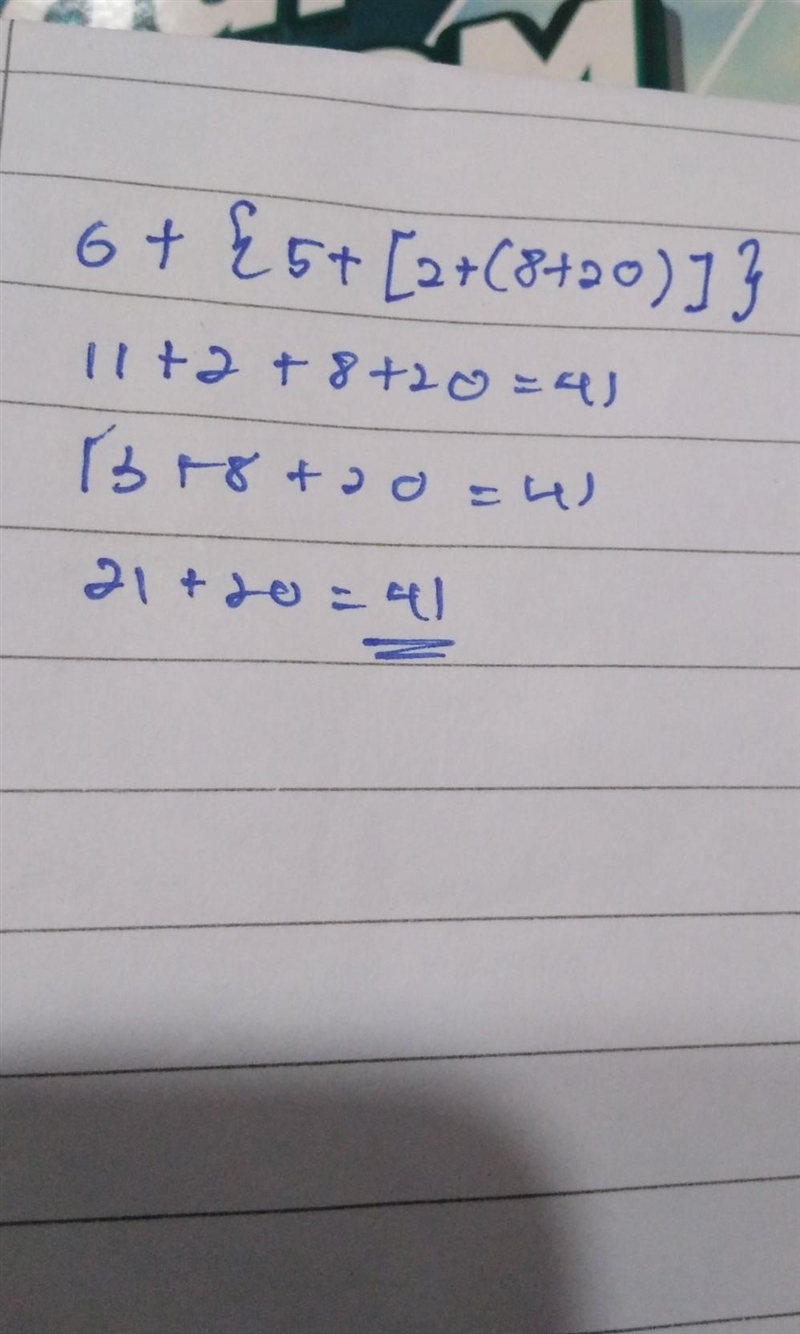 6 + {5+[2+(8+20)]}
11 + 2 + 8 + 20 = 41
13 + 8 + 20 = 41
21 + 20 = 41